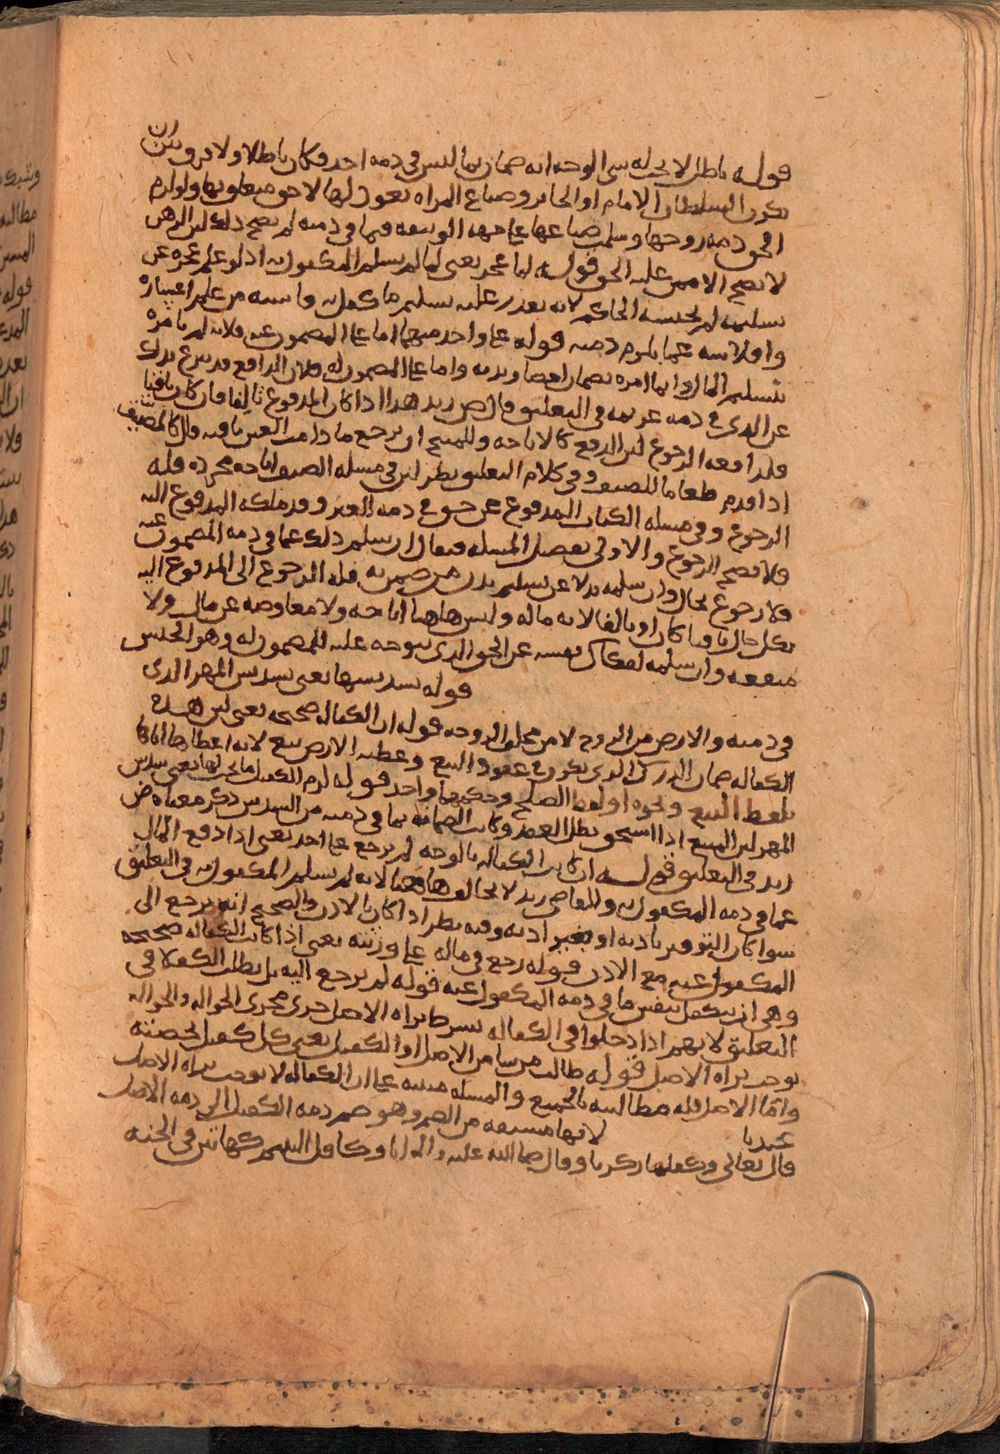 قوله باطل لا يجب له شي الوجه انه ضمان بما ليس في ذمه احد فكان باطلا ولا فرق بين ان
يكون السلطان الامام او الجاير وضياع المراه يعود لها لا حق
الحق ذمه زوجها وسلمت ضياعها على جهه الوثيقه فيما في ذمته لم يصح ذلك لان الرهن
لا يصح الا ممن عليه الحق قوله لما عجز يعني لما لم يسلم المكفول به اذ لو علم عجزه عن
تسليمه لم يحبسه الحاكم لانه تعذر عليه تسليم ما كفل به
وافلاسه عما يلزم ذمته قوله على واحد منهما اما على المضمون عنه فلانه لم يامره
بتسليم المال وانما امره بضمان احضار بدنه واما على المضمون له فلان الدافع قد تبرع بذلك
عن الذي في ذمه غريمه في التعليق قال ص زيد هذا اذا كان المدفوع تالفا فان كان باقيا
فللدافع الرجوع لان الدفع كالاباحه وللمبيح ان يرجع ما دامت العين باقيه قال كالمضيف
اذا قدم طعاما للضيف وفي كلام التعليق نظر لان في مسله الضيف اباحه مجرده فله
الرجوع وفي مسله الكتاب المدفوع عن حق في ذمه الغير وقد ملكه المدفوع اليه
فلا يصح الرجوع والاولى تفصيل المسله فيقال ان سلم ذلك عما في ذمه المضمون عنه
فلا رجوع بحال وان سلمه بدلا عن تسليم بدن من ضمن به فله الرجوع الى المدفوع اليه
بكل حال باقيا كان او تالفا لانه ماله وليس هاهنا اباحه ولا معاوضه عن مال ولا
منفعه وان سلمه لفكاك نفسه عن الحق الذي يتوجه عليه للمضمون له وهو الحبس
قوله بسدسها يعني بسدس المهر الذي
في ذمته والارض من الزوج لا من مخلف الزوجه قوله ان الكفاله صحيحه يعني لان هذه
الكفاله ضمان الدرك الذي يكون في عقود البيع وعطيه الارض بيع لانه اعطاها اياها
بلفظ البيع ونحوه او لفظ الصلح وحكمهما واحد قوله لزم الكفيل ما يجب لها يعني سدس
المهر لان المبيع اذا استحق بطل العقد وكانت الضمانه بما في ذمته من السدس ذكر معناه ض
زيد في التعليق قوله ان كانت الكفاله بالوجه لم يرجع على احد يعني اذا دفع المال
عما في ذمه المكفول به والقاضي زيد لا يخالف هاهنا لانه لم يسلم المكفول به في التعليق
سوا كان التوفير باذنه او بغير اذنه وفيه نظر اذا كان بالاذن والصحيح انه يرجع الى
المكفول عنه مع الاذن قوله رجع في ماله على ورثته يعني اذا كانت الكفاله صحيحه
وهي ان يتكفل بنفس ما في ذمه المكفول عنه قوله لم يرجع اليه بل يطلب الكفلا في
التعليق لانهم اذا دخلوا في الكفاله بشرط براه الاصل جرى مجرى الحواله والحواله
توجب براه الاصل قوله طالب من شا من الاصل او الكفيل يعني كل كفيل بحصته
واما الاصل فله مطالبته بالجميع والمسله مبنيه على ان الكفاله لا توجب براه الاصل
عندنا لانها مشتقه من الضم وهو ضم ذمه الكفيل الى ذمه الاصل
قال تعالى وكفلها زكريا وقال صلى الله عليه واله انا وكافل اليتيم كهاتين في الجنه